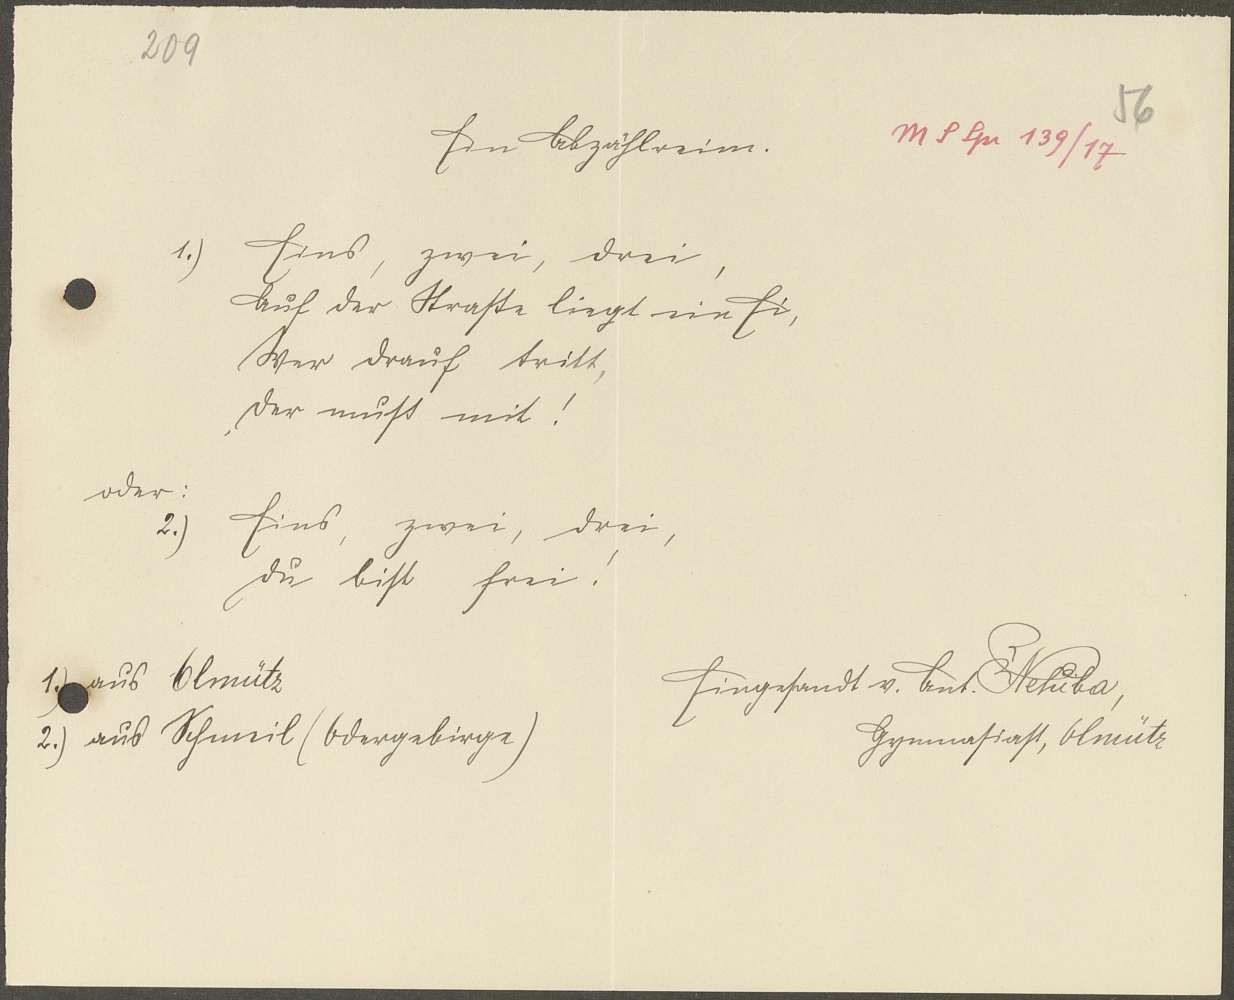 209
56
Ein Abzählreim.
M S Spr 139/17
1.) Eins, zwei, drei,
Auf der Straße liegt ein Ei,
Wer drauf tritt,
der muß mit!
oder:
2.) Eins, zwei, drei,
du bist frei!
1.) aus Olmütz
2.) aus Schmeil (Odergebirge)
Eingesandt v. Ant. Nehiba,
Gymnasiast, Olmütz